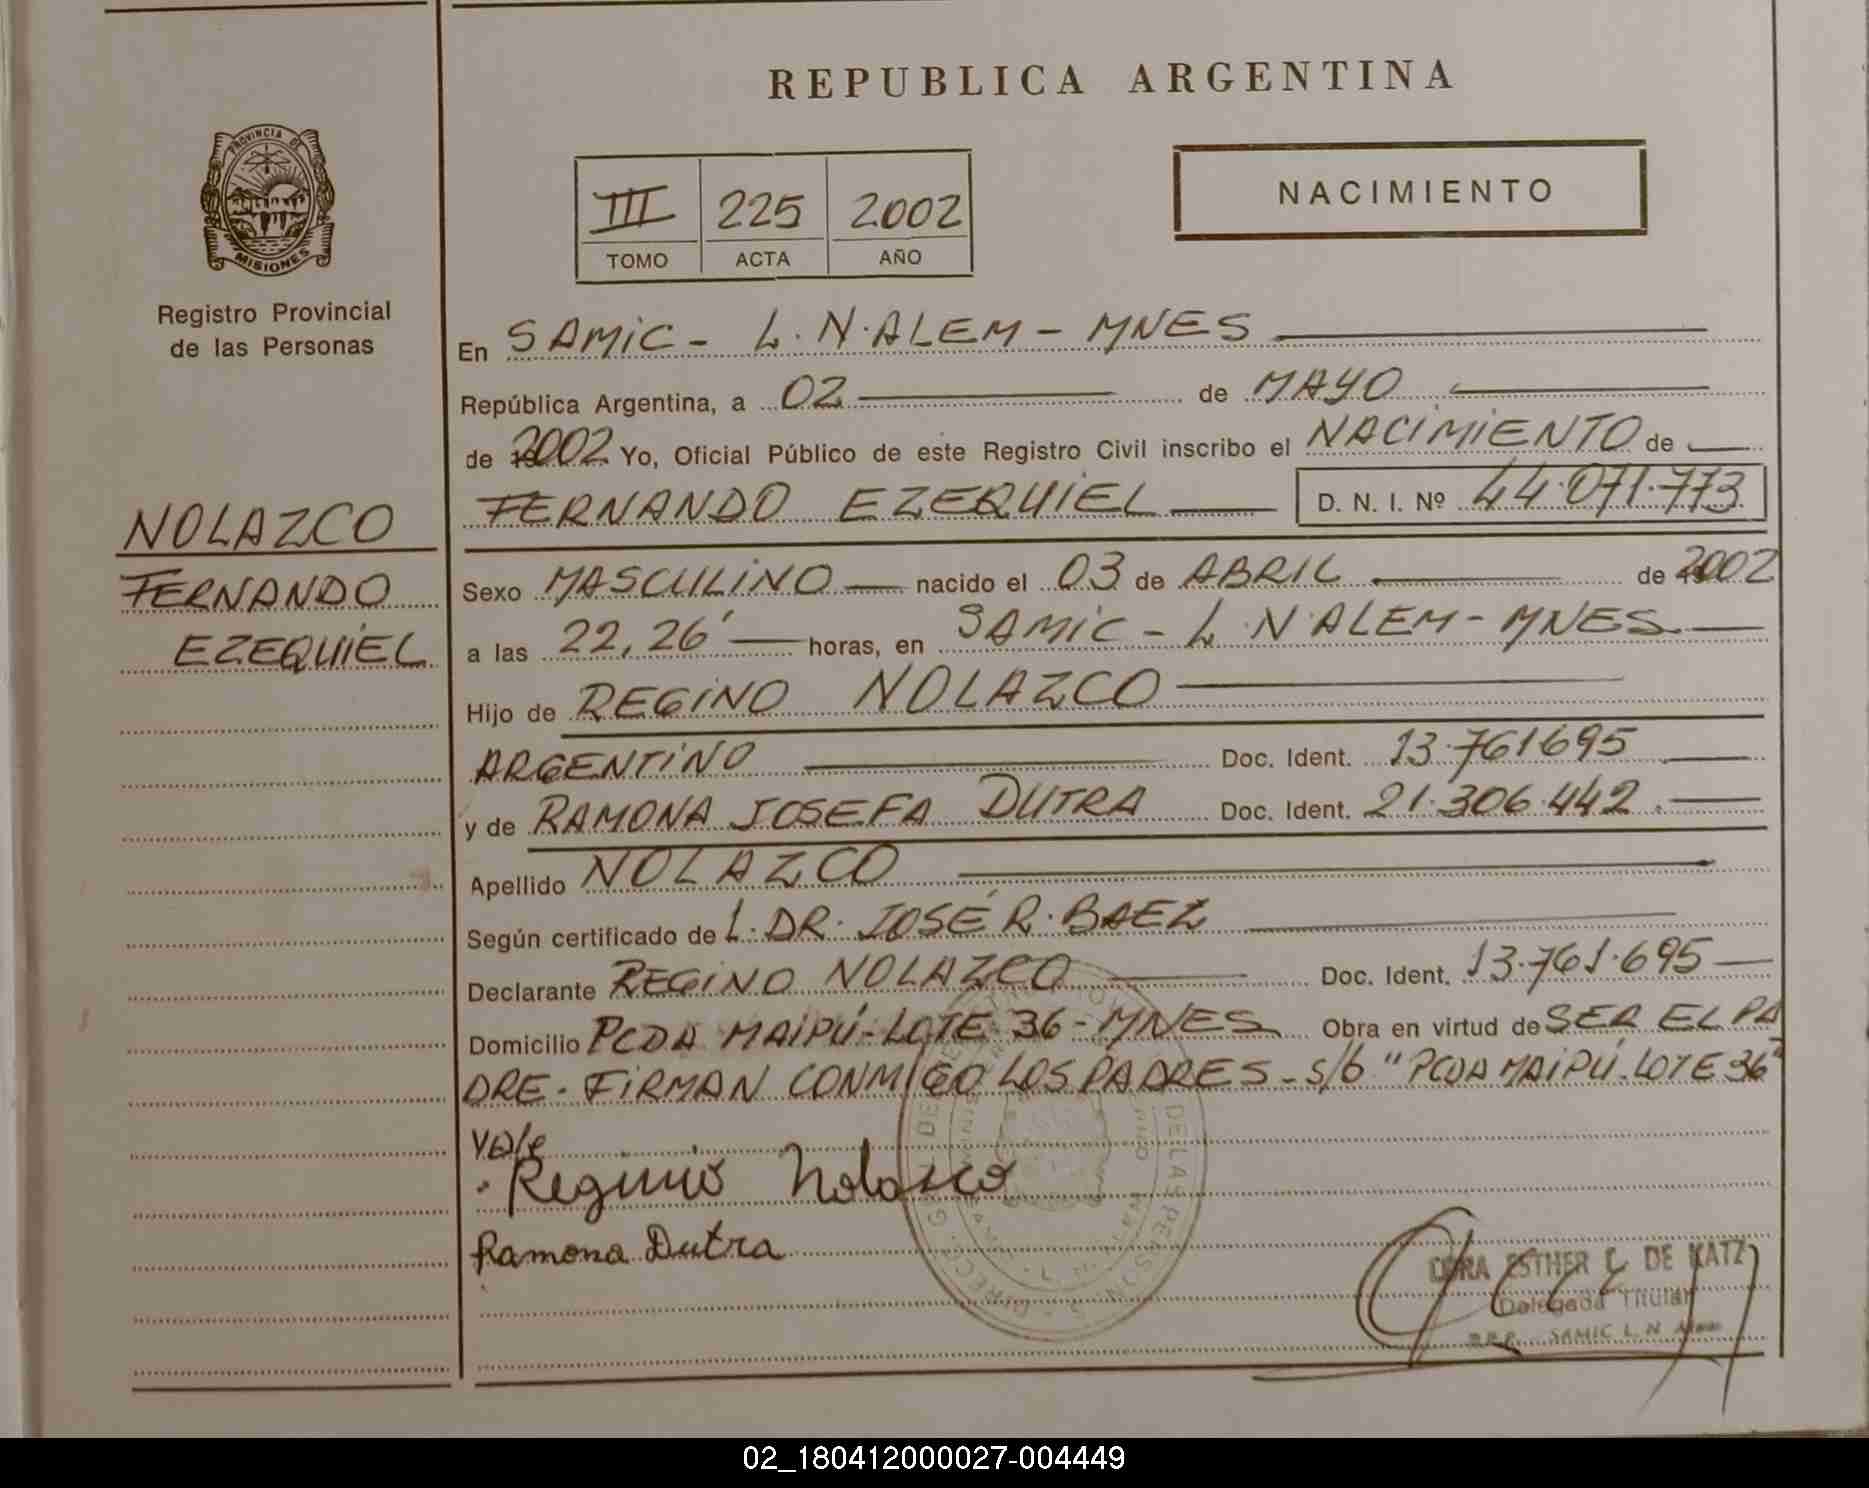 REPUBLICA ARGENTINA
PROVINCIA DE
MISIONES
Registro Provincial
de las Personas
III 225 2002
TOMO ACTA AÑO
NACIMIENTO
En SAMIC - L.N.ALEM - MNES
República Argentina, a 02 de MAYO
de 2002 Yo, Oficial Público de este Registro Civil inscribo el NACIMIENTO de
FERNANDO EZEQUIEL D. N. I. Nº 44.071.773
NOLAZCO
FERNANDO
EZEQUIEL
Sexo MASCULINO nacido el 03 de ABRIL de 2002
a las 22,26' horas, en SAMIC - L.N.ALEM - MNES
Hijo de REGINO NOLAZCO
ARGENTINO Doc. Ident. 13.761695
y de RAMONA JOSEFA DUTRA Doc. Ident. 21.306.442.
Apellido NOLAZCO
Según certificado de L. DR. JOSÉ R. BAEZ
Declarante REGINO NOLAZCO Doc. Ident. 13.761.695
Domicilio PCDA MAIPÚ-LOTE 36-MNES Obra en virtud de SER EL PA
DRE. FIRMAN CONMIGO LOS PADRES - s/b "PCDA MAIPÚ-LOTE 36"
Vale
Reginio Nolasco
Ramona Dutra
ESTHER C. DE KATZ
Delegada Titular
SAMIC L. N. Alem
02_180412000027-004449